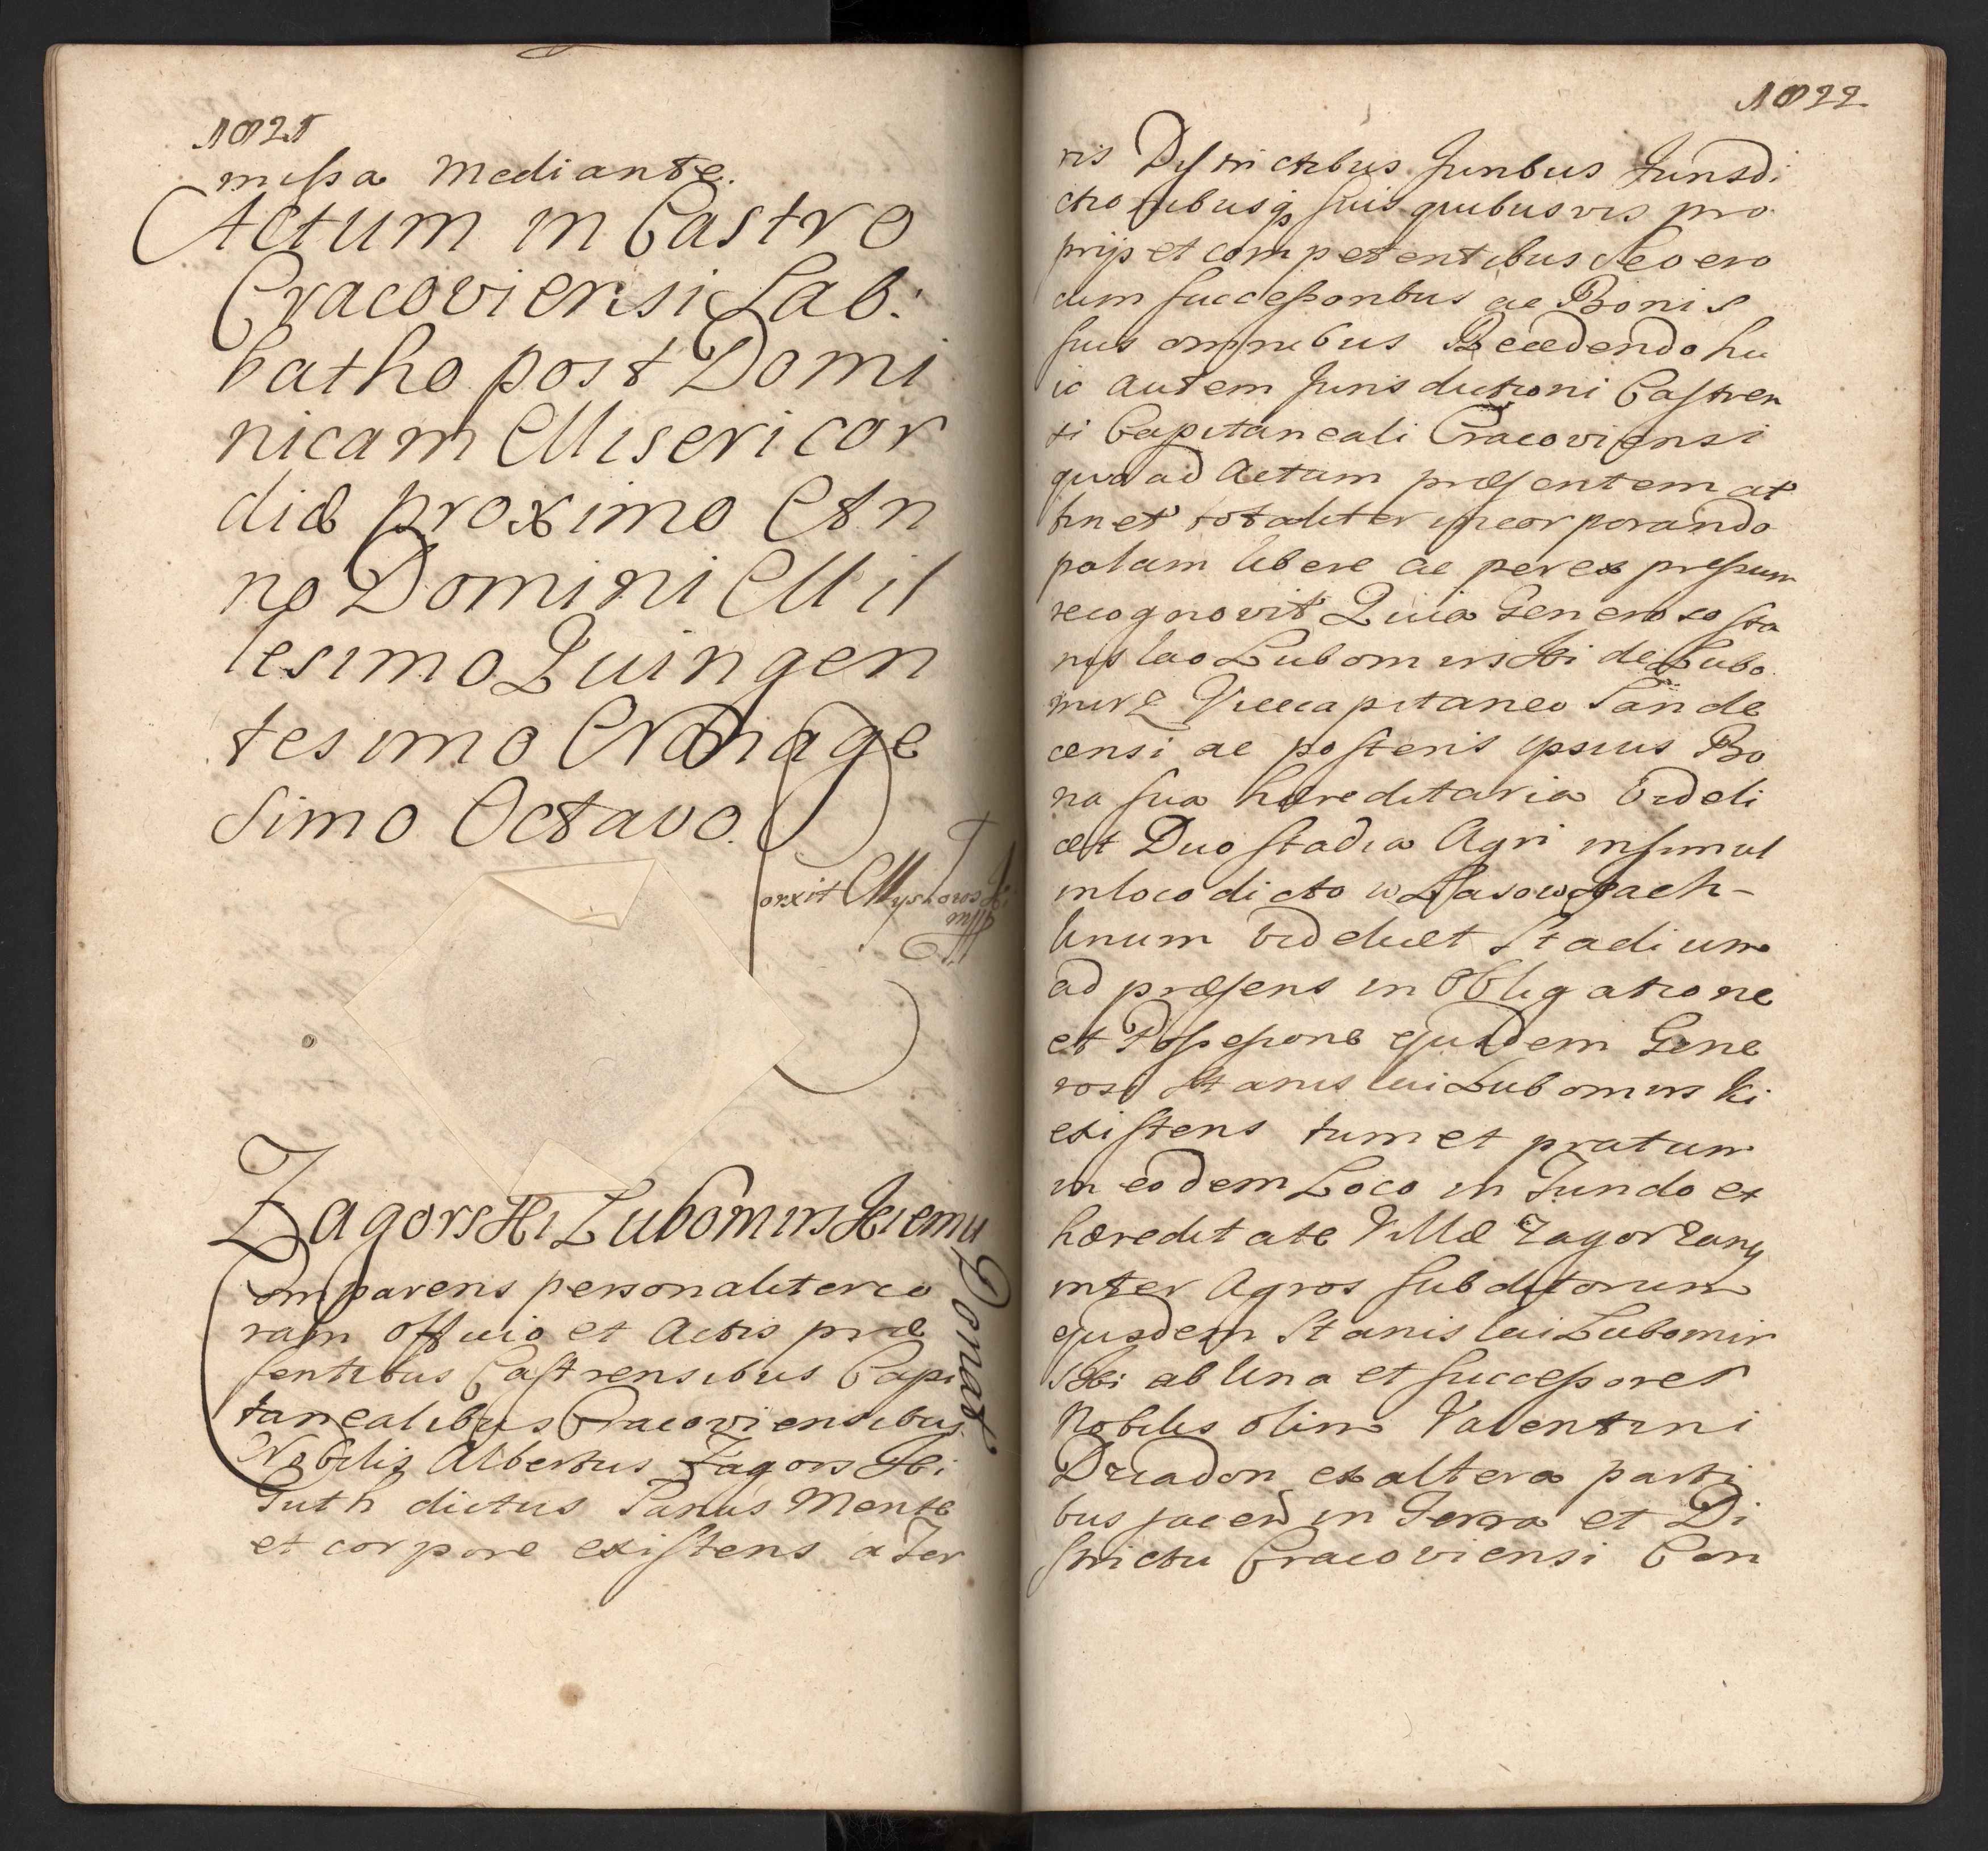 1021
missa mediante.
Actum in Castro
Cracoviensi Sab:
batho post Domi
nicam Misericor
diæ proximo An
no Domini Mil
lesimo Quingen
tesimo Nonage
simo Octavo.
orxit Myskowski
mpp
Zagorski Lubomirskiemu
Donat
Comparens personaliter co
ram Officio et Actis præ
sentibus Castrensibus Capi
tanealibus Cracoviensibus
Nobilis Albertus Zagorski
Guth dictus Sanus Mente
et corpore existens a Ter
1022
ris Districtibus Juribus Jurisdi
ctionibusq3 suis quibusvis pro
prijs et competentibus seo ero
dem successoribus ac Bonis
suis omnibus Recedendo hu
ic autem Jurisdictioni Castren
si Capitaneali Cracoviensi
quo ad Actum præsentem at
tinet totaliter incorporando
palam libere ac per expressum
recognovit Quia Generoso Sta
nislao Lubomirski de Lubo
mirz Vicecapitaneo Sande
censi ac posteris ipsius Bo
na sua hæreditaria videli
cet Duo stadia Agri insimul
in loco dicto w Lasowskach
Unum videlicet Stadium
ad præsens in Obligatione
et Possessione ejusdem Gene
rosi Stanislai Lubomirski
existens tum et pratum
in eodem Loco in Fundo et
hæreditate Villæ Zagorzany
inter Agros subditorum
ejusdem Stanislai Lubomir
ski ab Una et successores
Nobilis olim Valentini
Dziadon ex altera parti
bus jacen in Terra et Di
strictu Cracoviensi Con